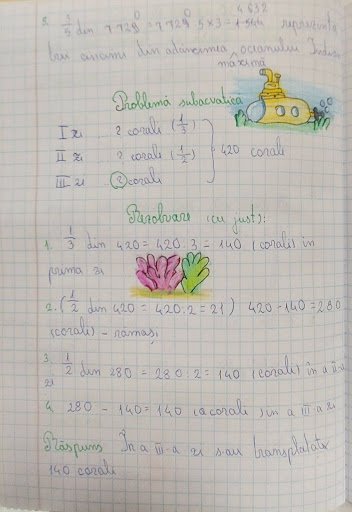 4632
2. 3/5 din 7729 = 7729 5 × 3 = 1544 reprezintă
din adâncimea oceanului Indian
maximă
Problemă subacvatică
I zi ? corali (1/3)
II zi ? corali (1/2) 420 corali
III zi ? corali
Rezolvare (cu just):
1. 1/3 din 420 = 420 : 3 = 140 (corali) în
prima zi
2. (1/2 din 420 = 420 : 2 = 21) 420 - 140 = 280
(corali) - rămași
3. 1/2 din 280 = 280 : 2 = 140 (corali) în a II-a
zi
4. 280 - 140 = 140 (a corali) în a III-a zi
Răspuns În a III-a zi s-au transplatate
140 corali